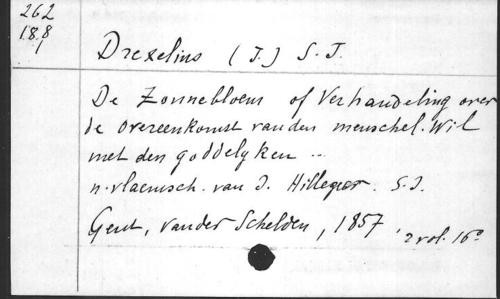 262
18.8/
Drexelius (J.) S.J.
De Zonnebloem of Verhandeling over
de overeenkomst van den menschel. Wil
met den goddelyken ..
n. vlaemsch. van J. Hillegeer. S.J.
Gent, Vander Schelden, 1857, 2 vol. 16°